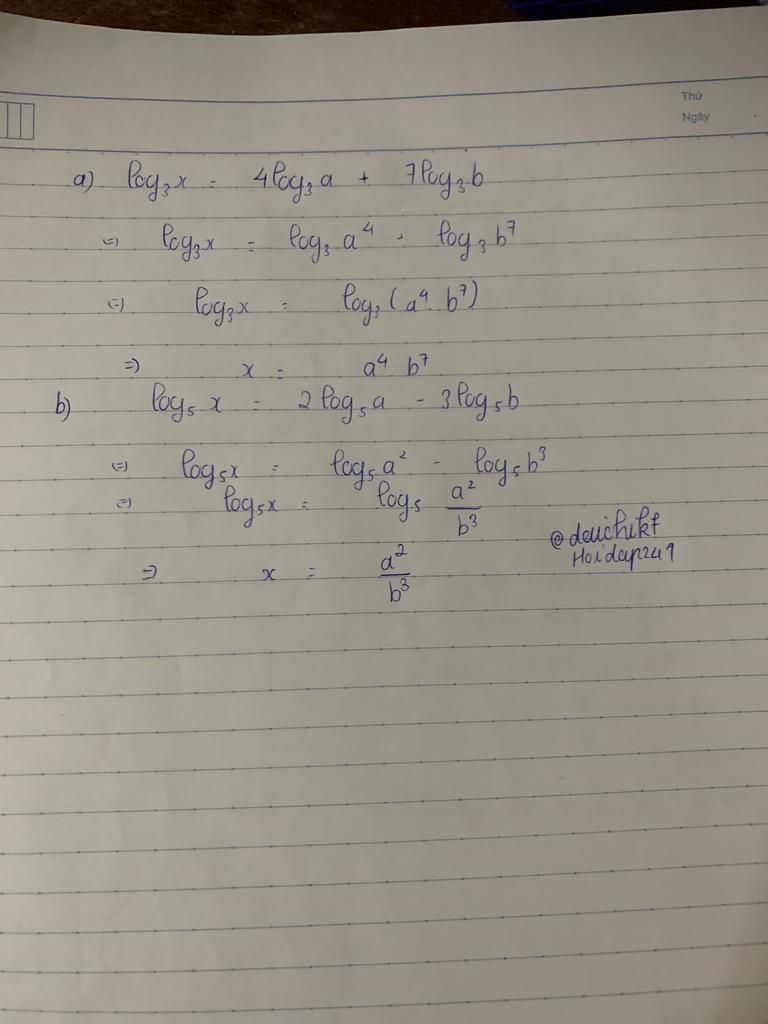 Thứ
Ngày
a) log₃x = 4log₃a + 7log₃b
(=) log₃x = log₃a⁴ · log₃b⁷
(=) log₃x = log₃(a⁴ b⁷)
=) x = a⁴ b⁷
b) log₅x = 2log₅a - 3log₅b
(=) log₅x = log₅a² - log₅b³
(=) log₅x = log₅ a²/b³
=) x = a²/b³
@deuchikt
Hoidap247